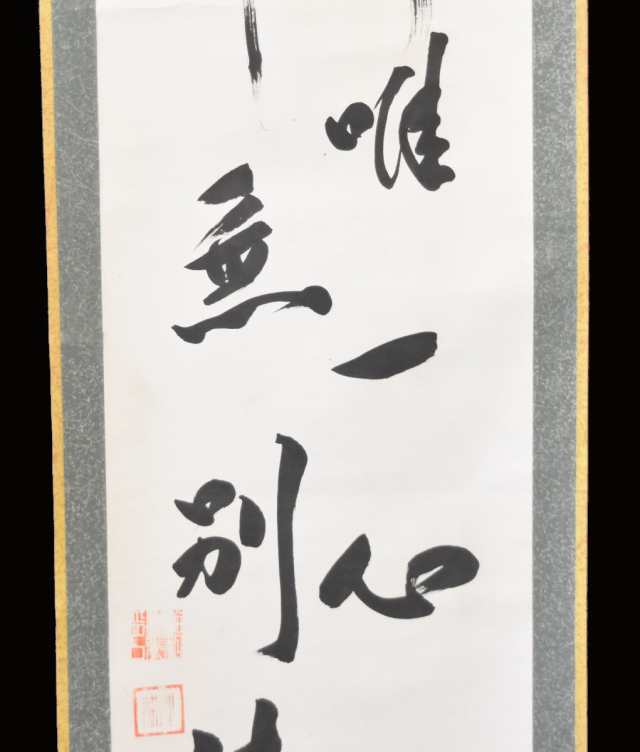 唯一心
無別